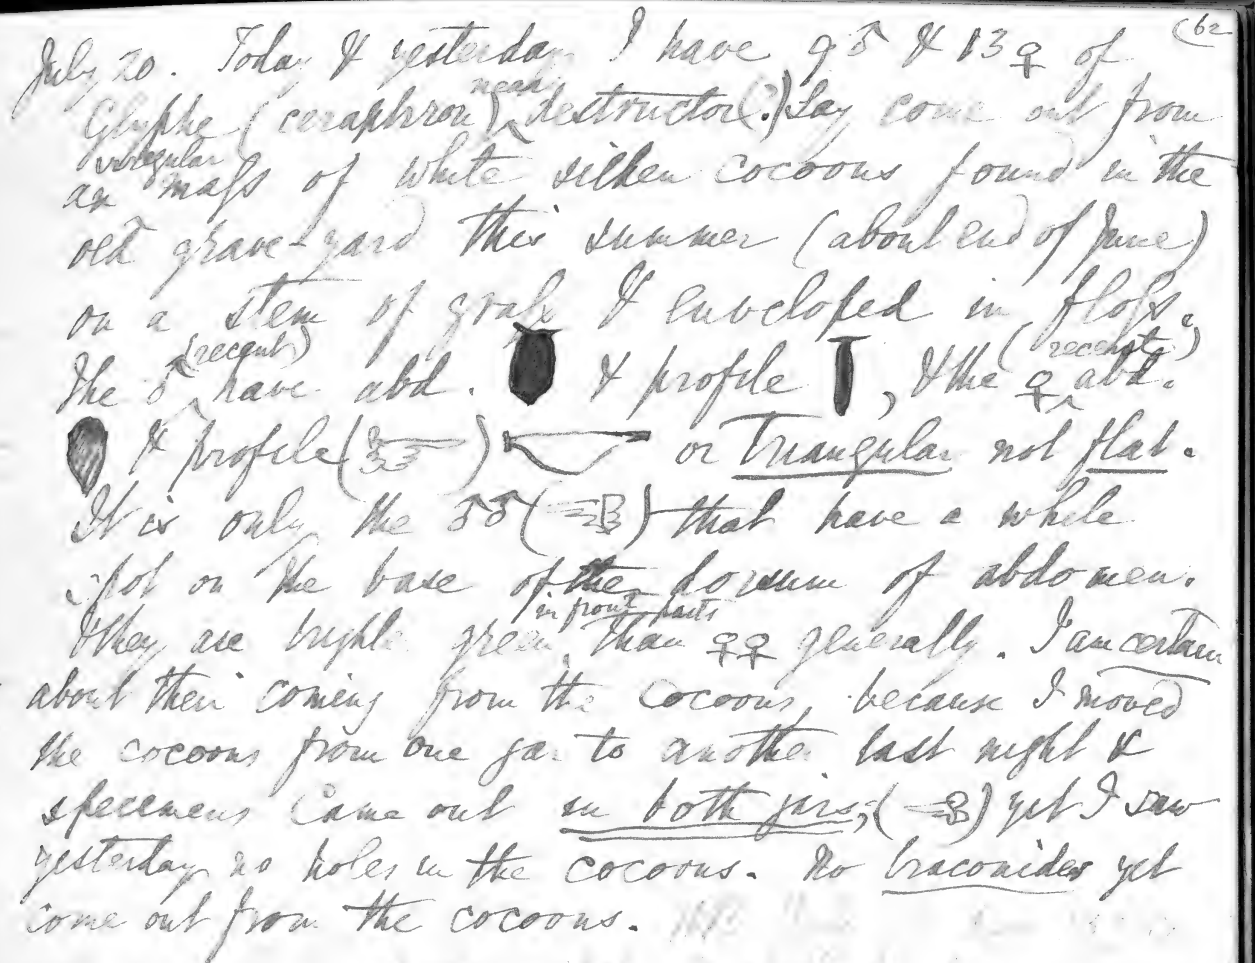 (62
July 20. Today & yesterday I have 9♂ & 13♀ of
Glyphe (ceraphron) near destructor(?) Say come out from
an irregular maſs of white silken cocoons found in the
old grave-yard this summer (about end of June)
on a stem of graſs & enveloped in floſs.
The ♂ (recent) have abd. & profile , & the ♀ (recent) abd.
& profile ( ) or triangular not flat.
It is only the ♂♂ ( ) that have a white
spot on the base of the dorsum of abdomen.
They are brighter green, in front parts than ♀♀ generally. I am certain
about their coming from the cocoons, because I moved
the cocoons from one jar to another last night &
specimens came out in both jars; ( ) yet I saw
yesterday no holes in the cocoons. No braconides yet
come out from the cocoons.